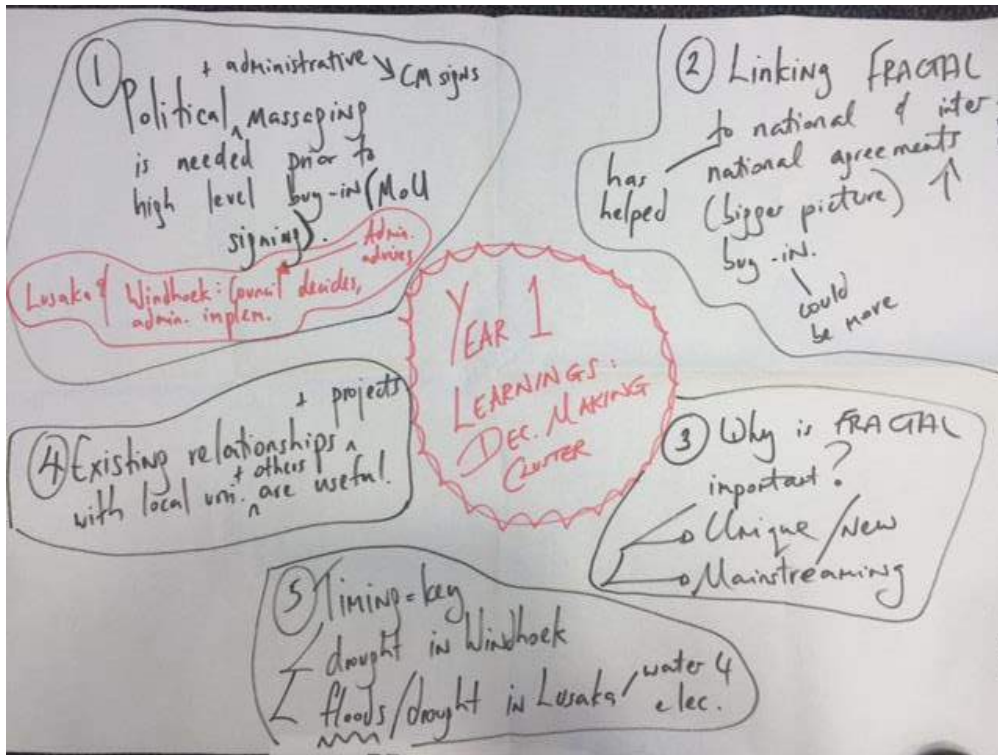 ① + administrative ↘ CM signs
Political ^ massaging
is needed prior to
high level buy-in (MoU
signing).
Admin.
advises
Lusaka & Windhoek: Council decides,
admin. implem.
② Linking FRACTAL
to national & inter
national agreements ↑
has
helped
(bigger picture)
buy-in.
could
be more
YEAR 1
LEARNINGS:
DEC. MAKING
CLUSTER
③ Why is FRACTAL
important?
Unique/New
Mainstreaming
+ projects
④ Existing relationships ^
+ others
with local uni. ^ are useful.
⑤ Timing = key
drought in Windhoek
floods/drought in Lusaka / water 4
elec.